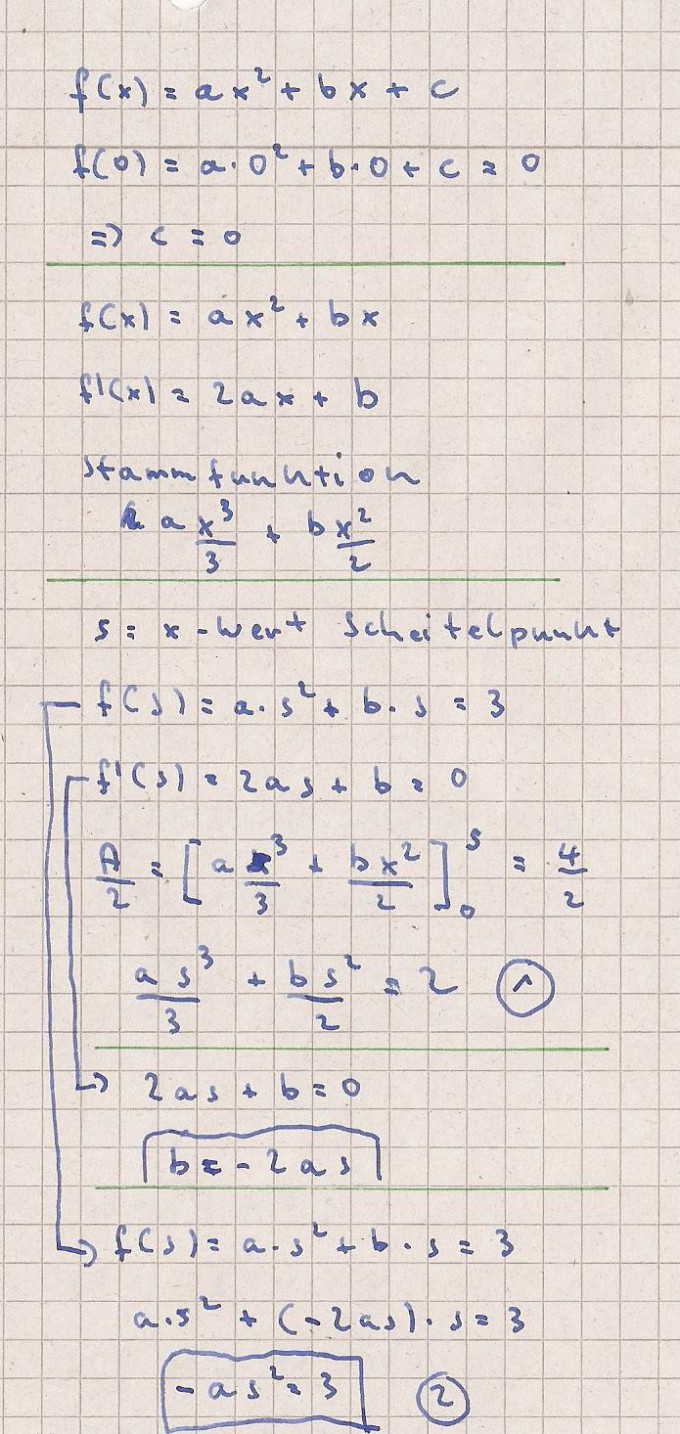 f(x) = ax² + bx + c
f(0) = a·0² + b·0 + c = 0
=> c = 0
f(x) = ax² + bx
f'(x) = 2ax + b
Stammfunktion
a x³/3 + b x²/2
s = x-Wert Scheitelpunkt
f(s) = a·s² + b·s = 3
f'(s) = 2as + b = 0
A/2 = [a x³/3 + bx²/2]₀ˢ = 4/2
as³/3 + bs²/2 = 2 ①
2as + b = 0
b = -2as
f(s) = a·s² + b·s = 3
a·s² + (-2as)·s = 3
-as² = 3 ②